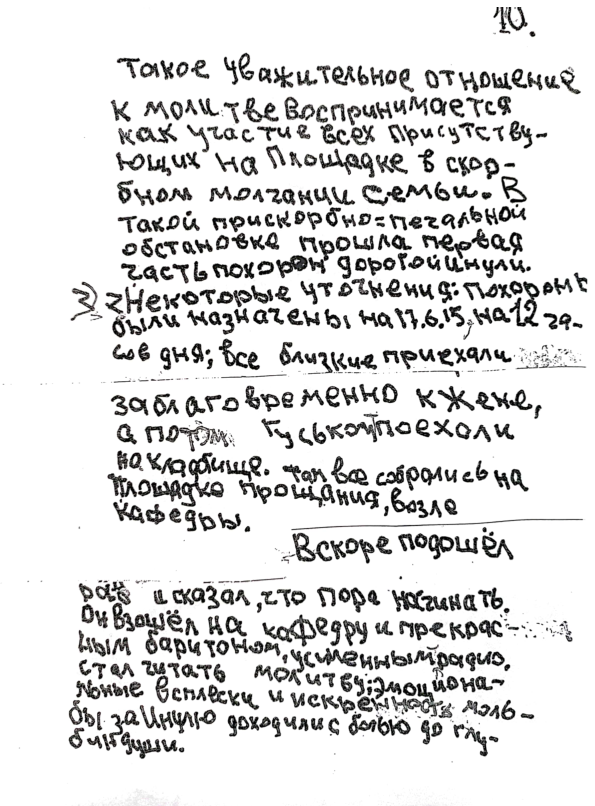 10.
Такое уважительное отношение
к молитве воспринимается
как участие всех присутству-
ющих на Площадке в скор-
бном молчании семьи. В
такой прискорбно=печальной
обстановке прошла первая
часть похорон дорогой Инули.
3) Некоторые уточнения: похороны
были назначены на 17.6.15, на 12 ча-
сов дня; все близкие приехали
заблаговременно к Жене,
а потом гуськом поехали
на кладбище. Там все собрались на
площадке прощания, возле
кафедры.
Вскоре подошёл
и сказал, что пора начинать.
Он взошёл на кафедру и прекрас-
ным баритоном, усиленным радио,
стал читать молитву; эмоциона-
льные всплески и искренность моль-
бы за Инулю доходили с болью до глу-
бин души.